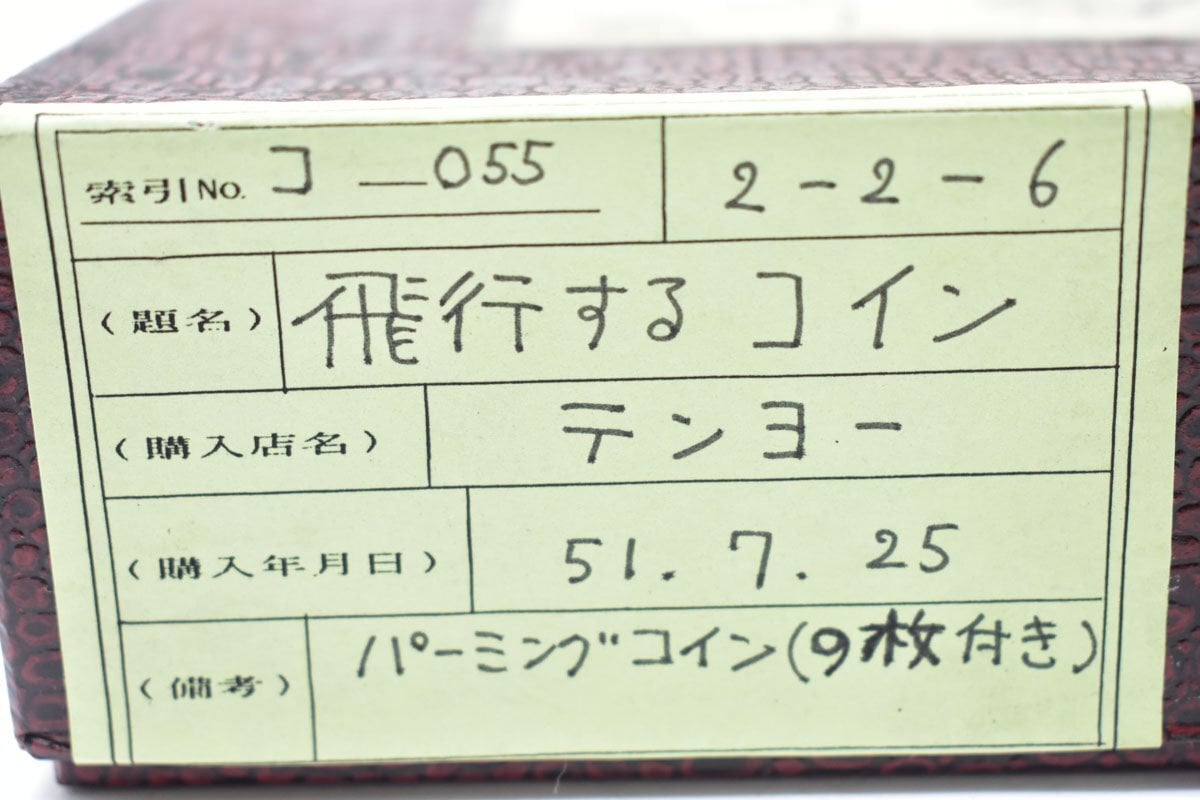 索引No. コ—055 2-2-6
(題名) 飛行するコイン
(購入店名) テンヨー
(購入年月日) 51.7.25
(備考) パーミングコイン(9枚付き)